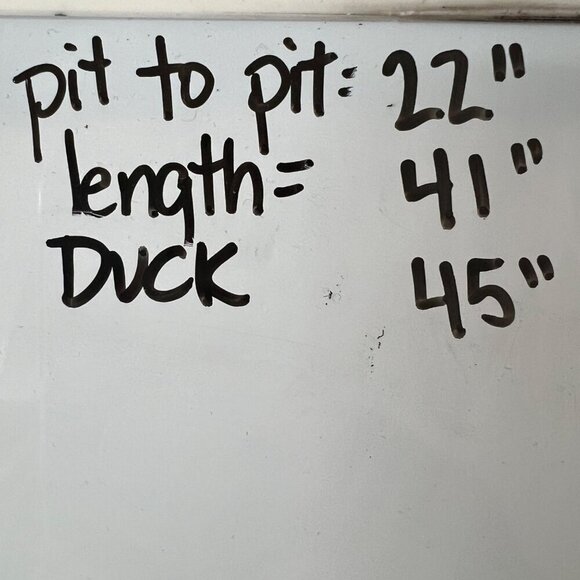 pit to pit= 22"
length= 41"
DUCK 45"